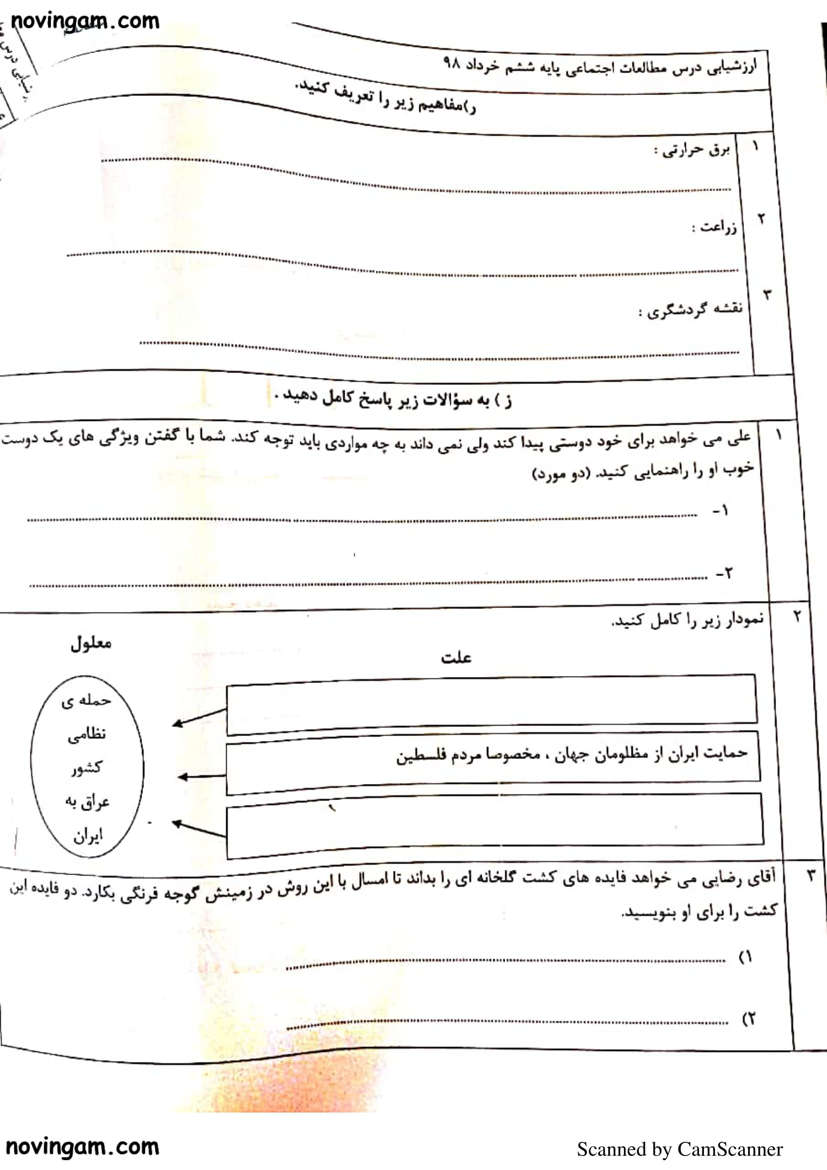 novingam.com
ارزشیابی درس مطالعات اجتماعی پایه ششم خرداد ۹۸
ر)مفاهیم زیر را تعریف کنید.
۱ برق حرارتی :
۲ زراعت :
۳ نقشه گردشگری :
ز ) به سؤالات زیر پاسخ کامل دهید .
۱ علی می خواهد برای خود دوستی پیدا کند ولی نمی داند به چه مواردی باید توجه کند. شما با گفتن ویژگی های یک دوست
خوب او را راهنمایی کنید. (دو مورد)
۱-
۲-
۲ نمودار زیر را کامل کنید.
علت
معلول
حمایت ایران از مظلومان جهان ، مخصوصا مردم فلسطین
حمله ی
نظامی
کشور
عراق به
ایران
۳ آقای رضایی می خواهد فایده های کشت گلخانه ای را بداند تا امسال با این روش در زمینش گوجه فرنگی بکارد. دو فایده این
کشت را برای او بنویسید.
۱)
۲)
novingam.com
Scanned by CamScanner